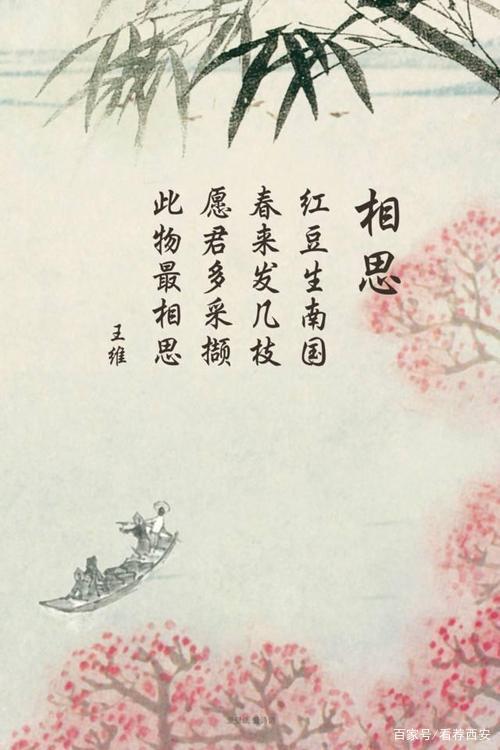 相思
红豆生南国
春来发几枝
愿君多采撷
此物最相思
王维
百家号/看荐西安